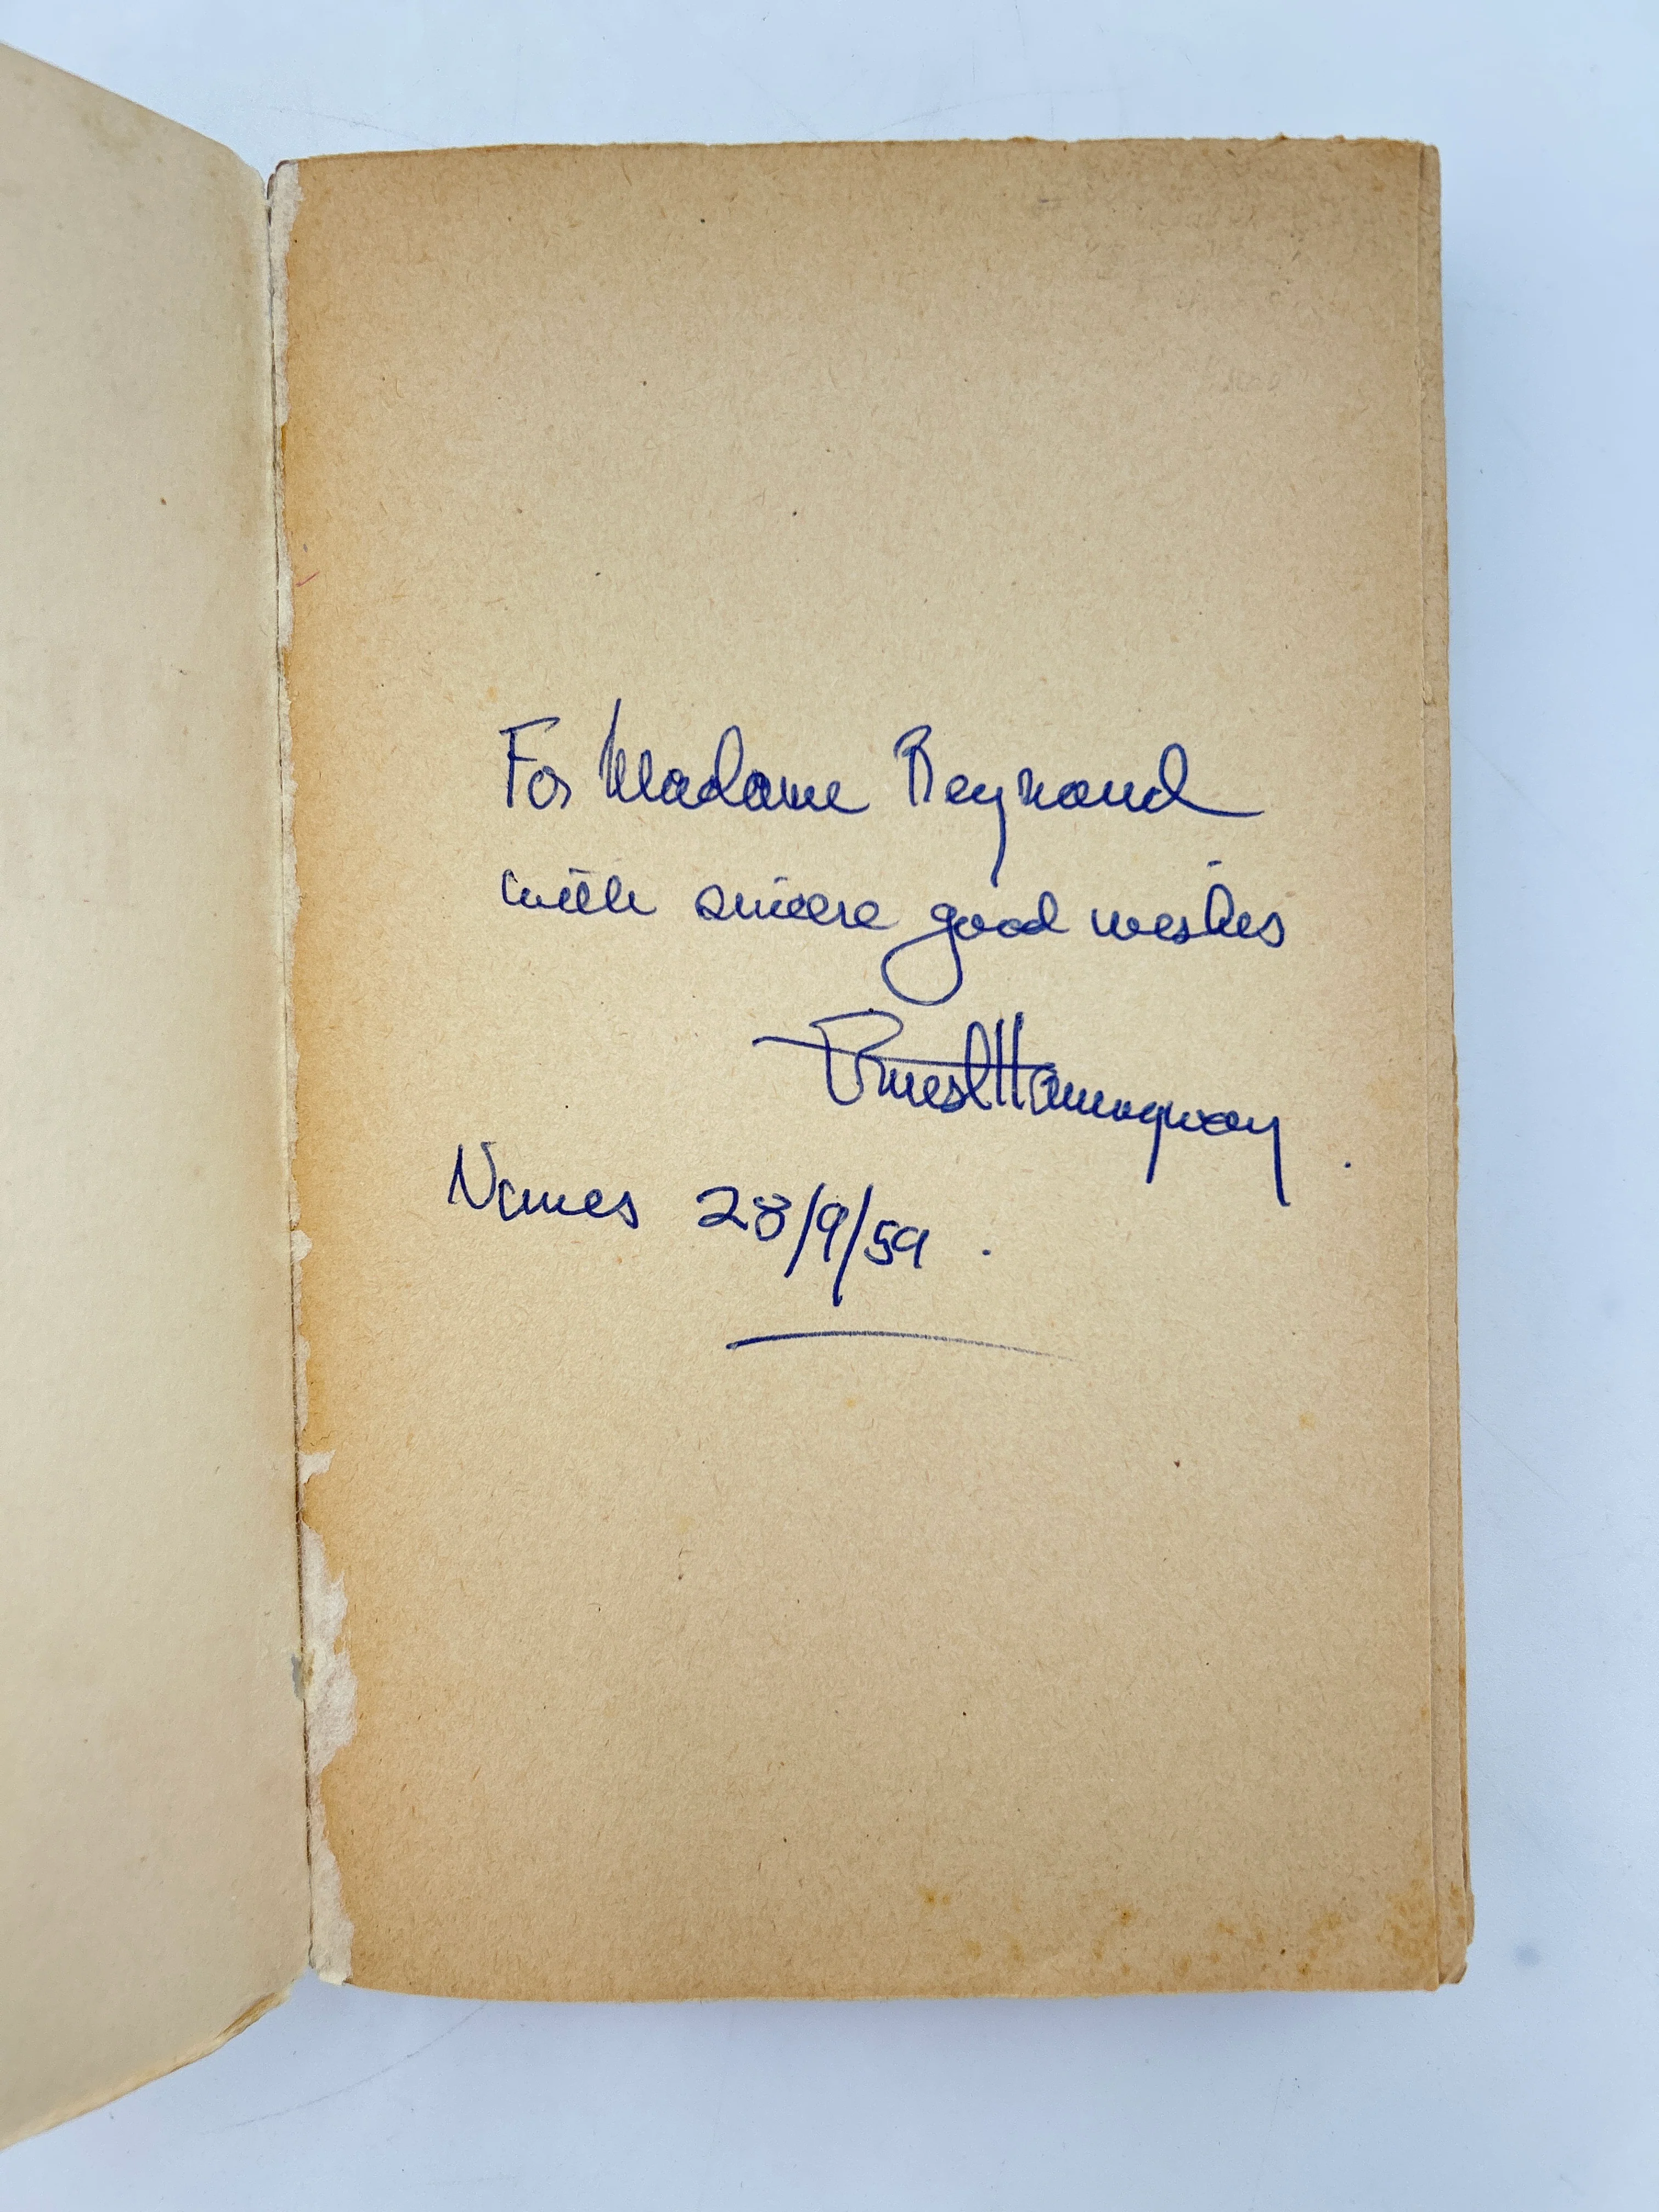 For Madame Reynaud
with sincere good wishes
Ernest Hemingway
Nimes 28/9/59.